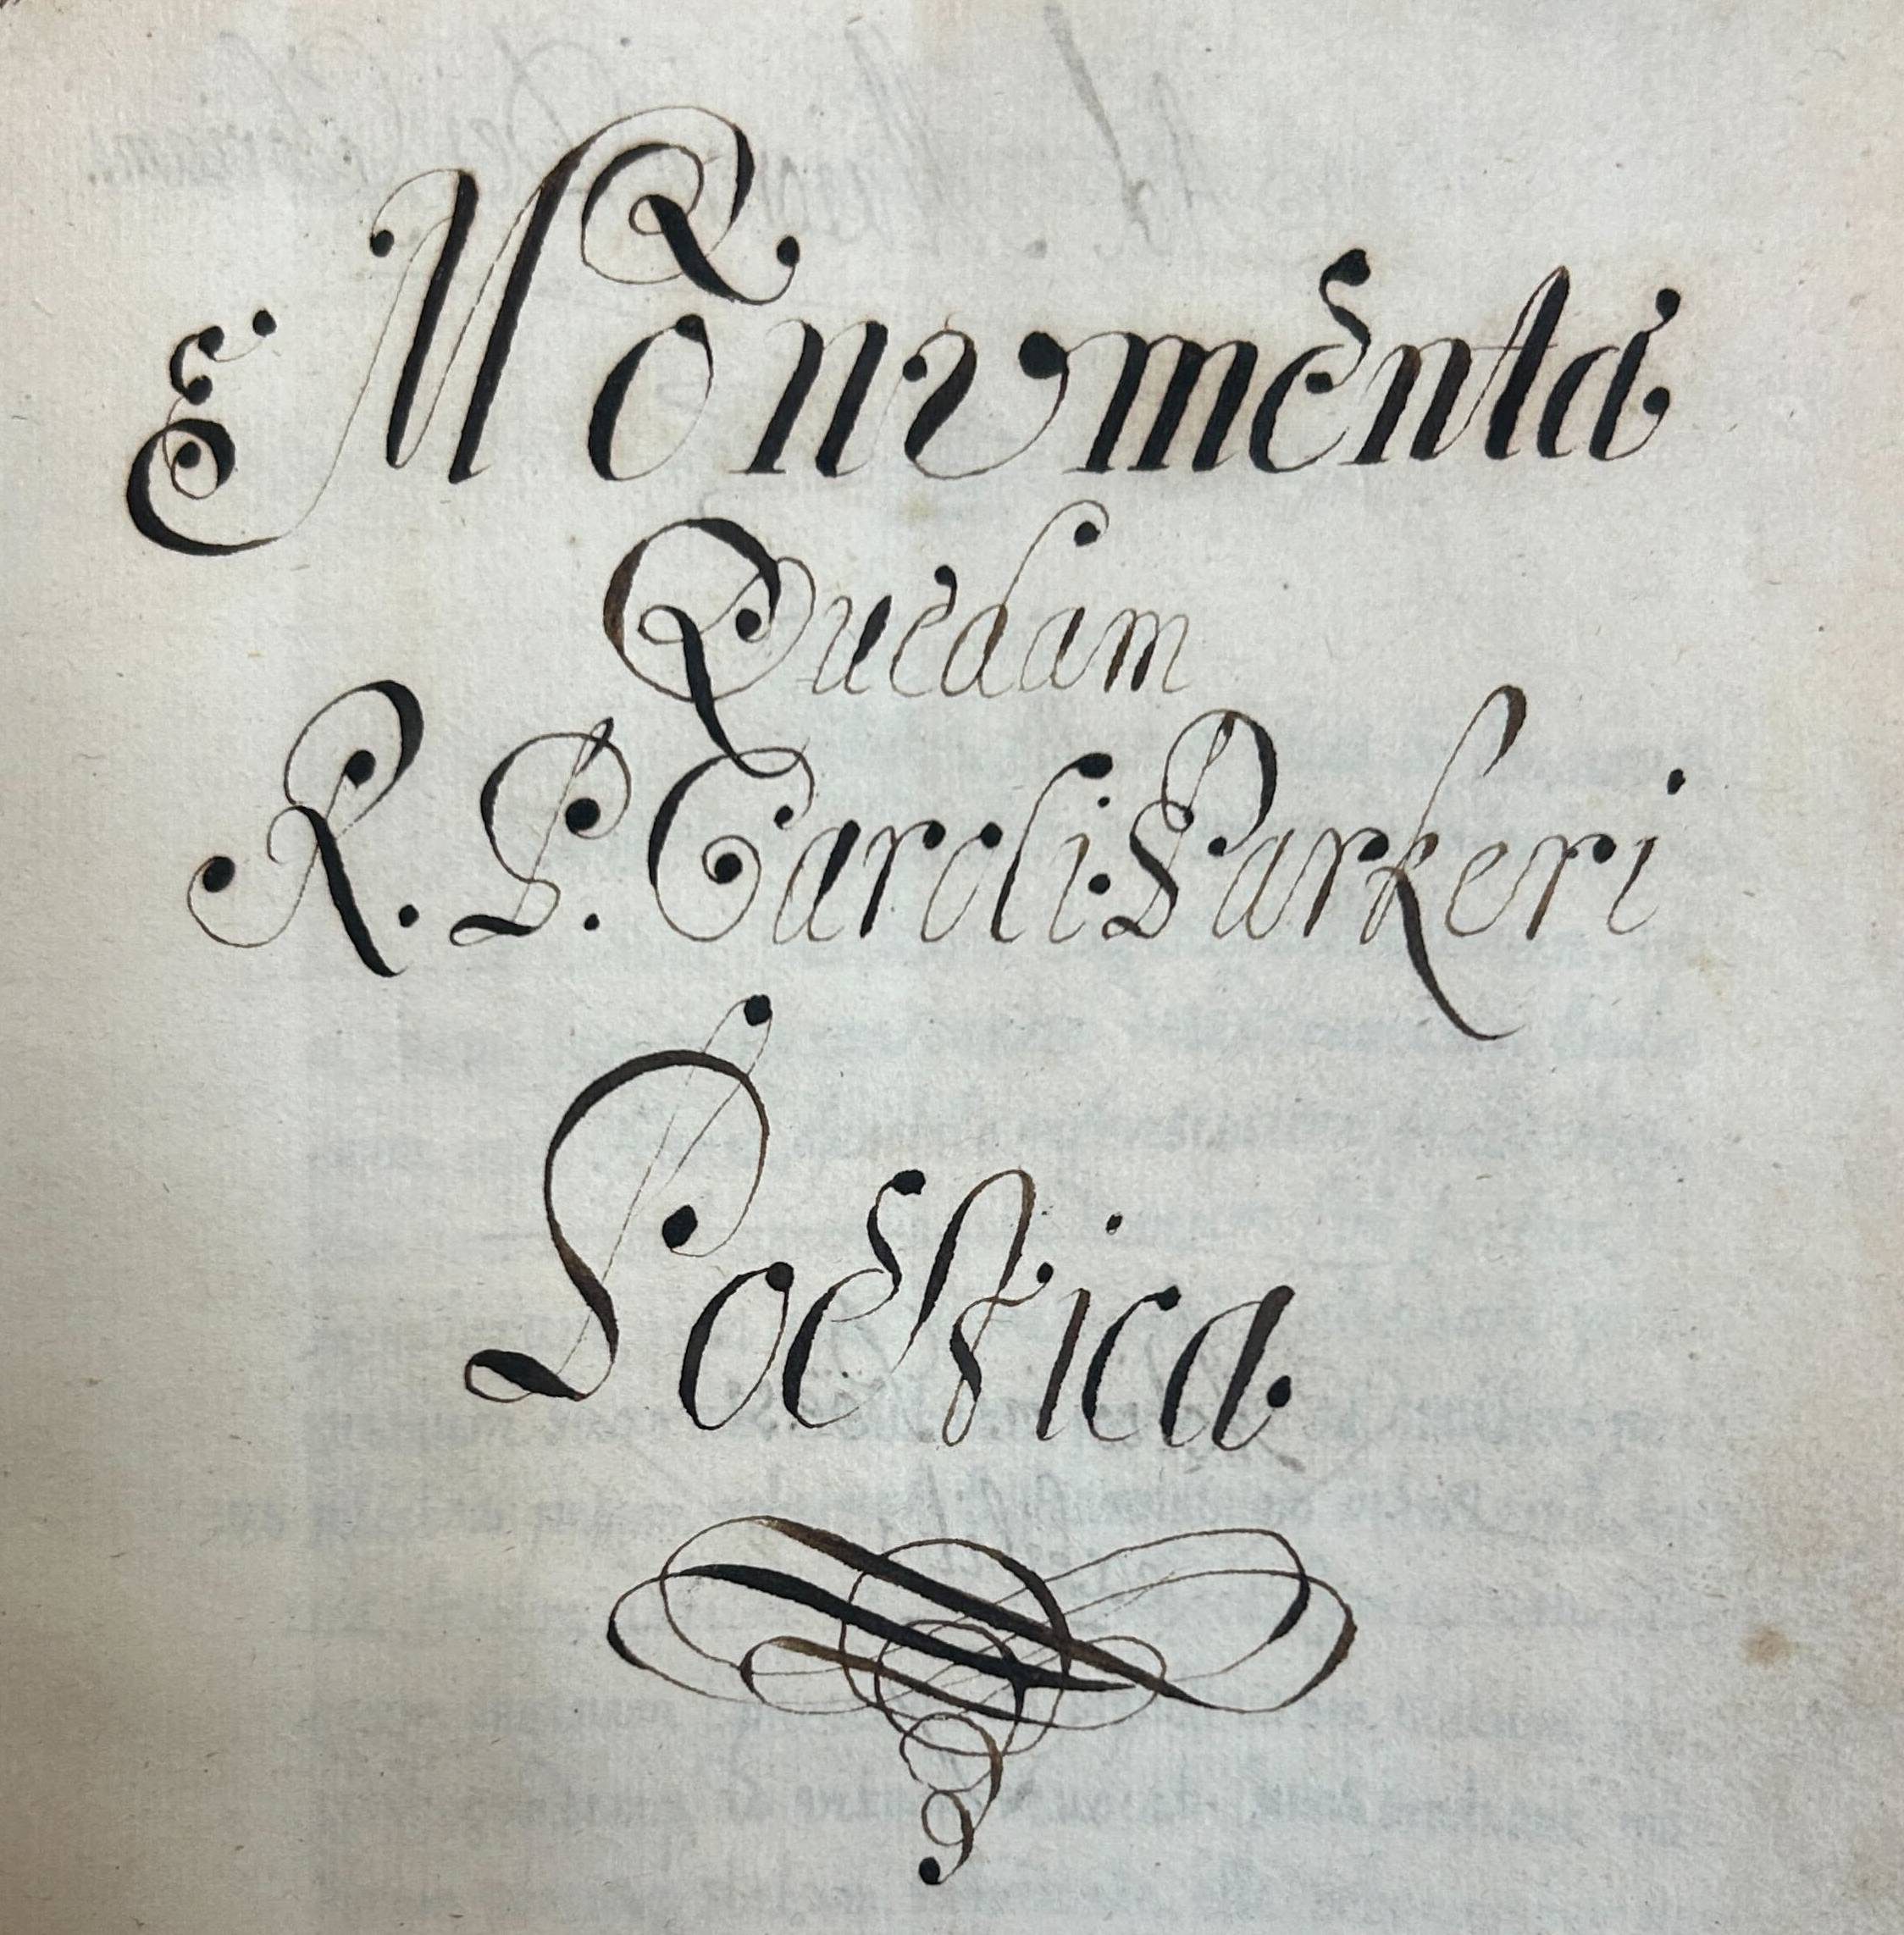 Monumenta
Quedam
R. P. Caroli Parkeri
Poëtica.